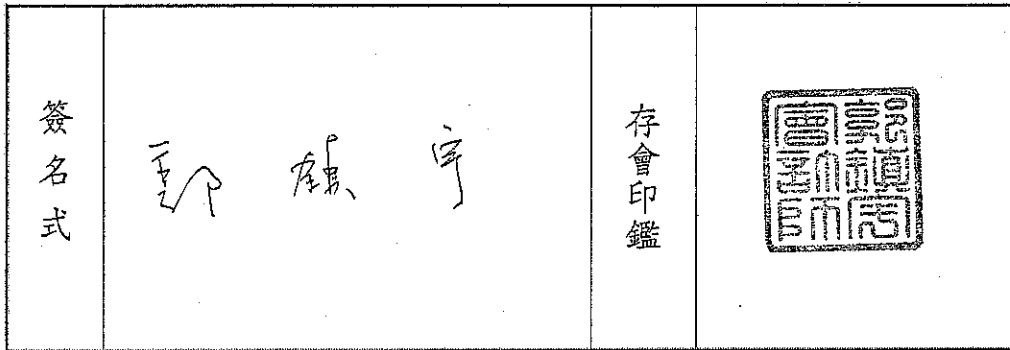 簽名式
郭鎮宇
存會印鑑
郭鎮宇會計師印